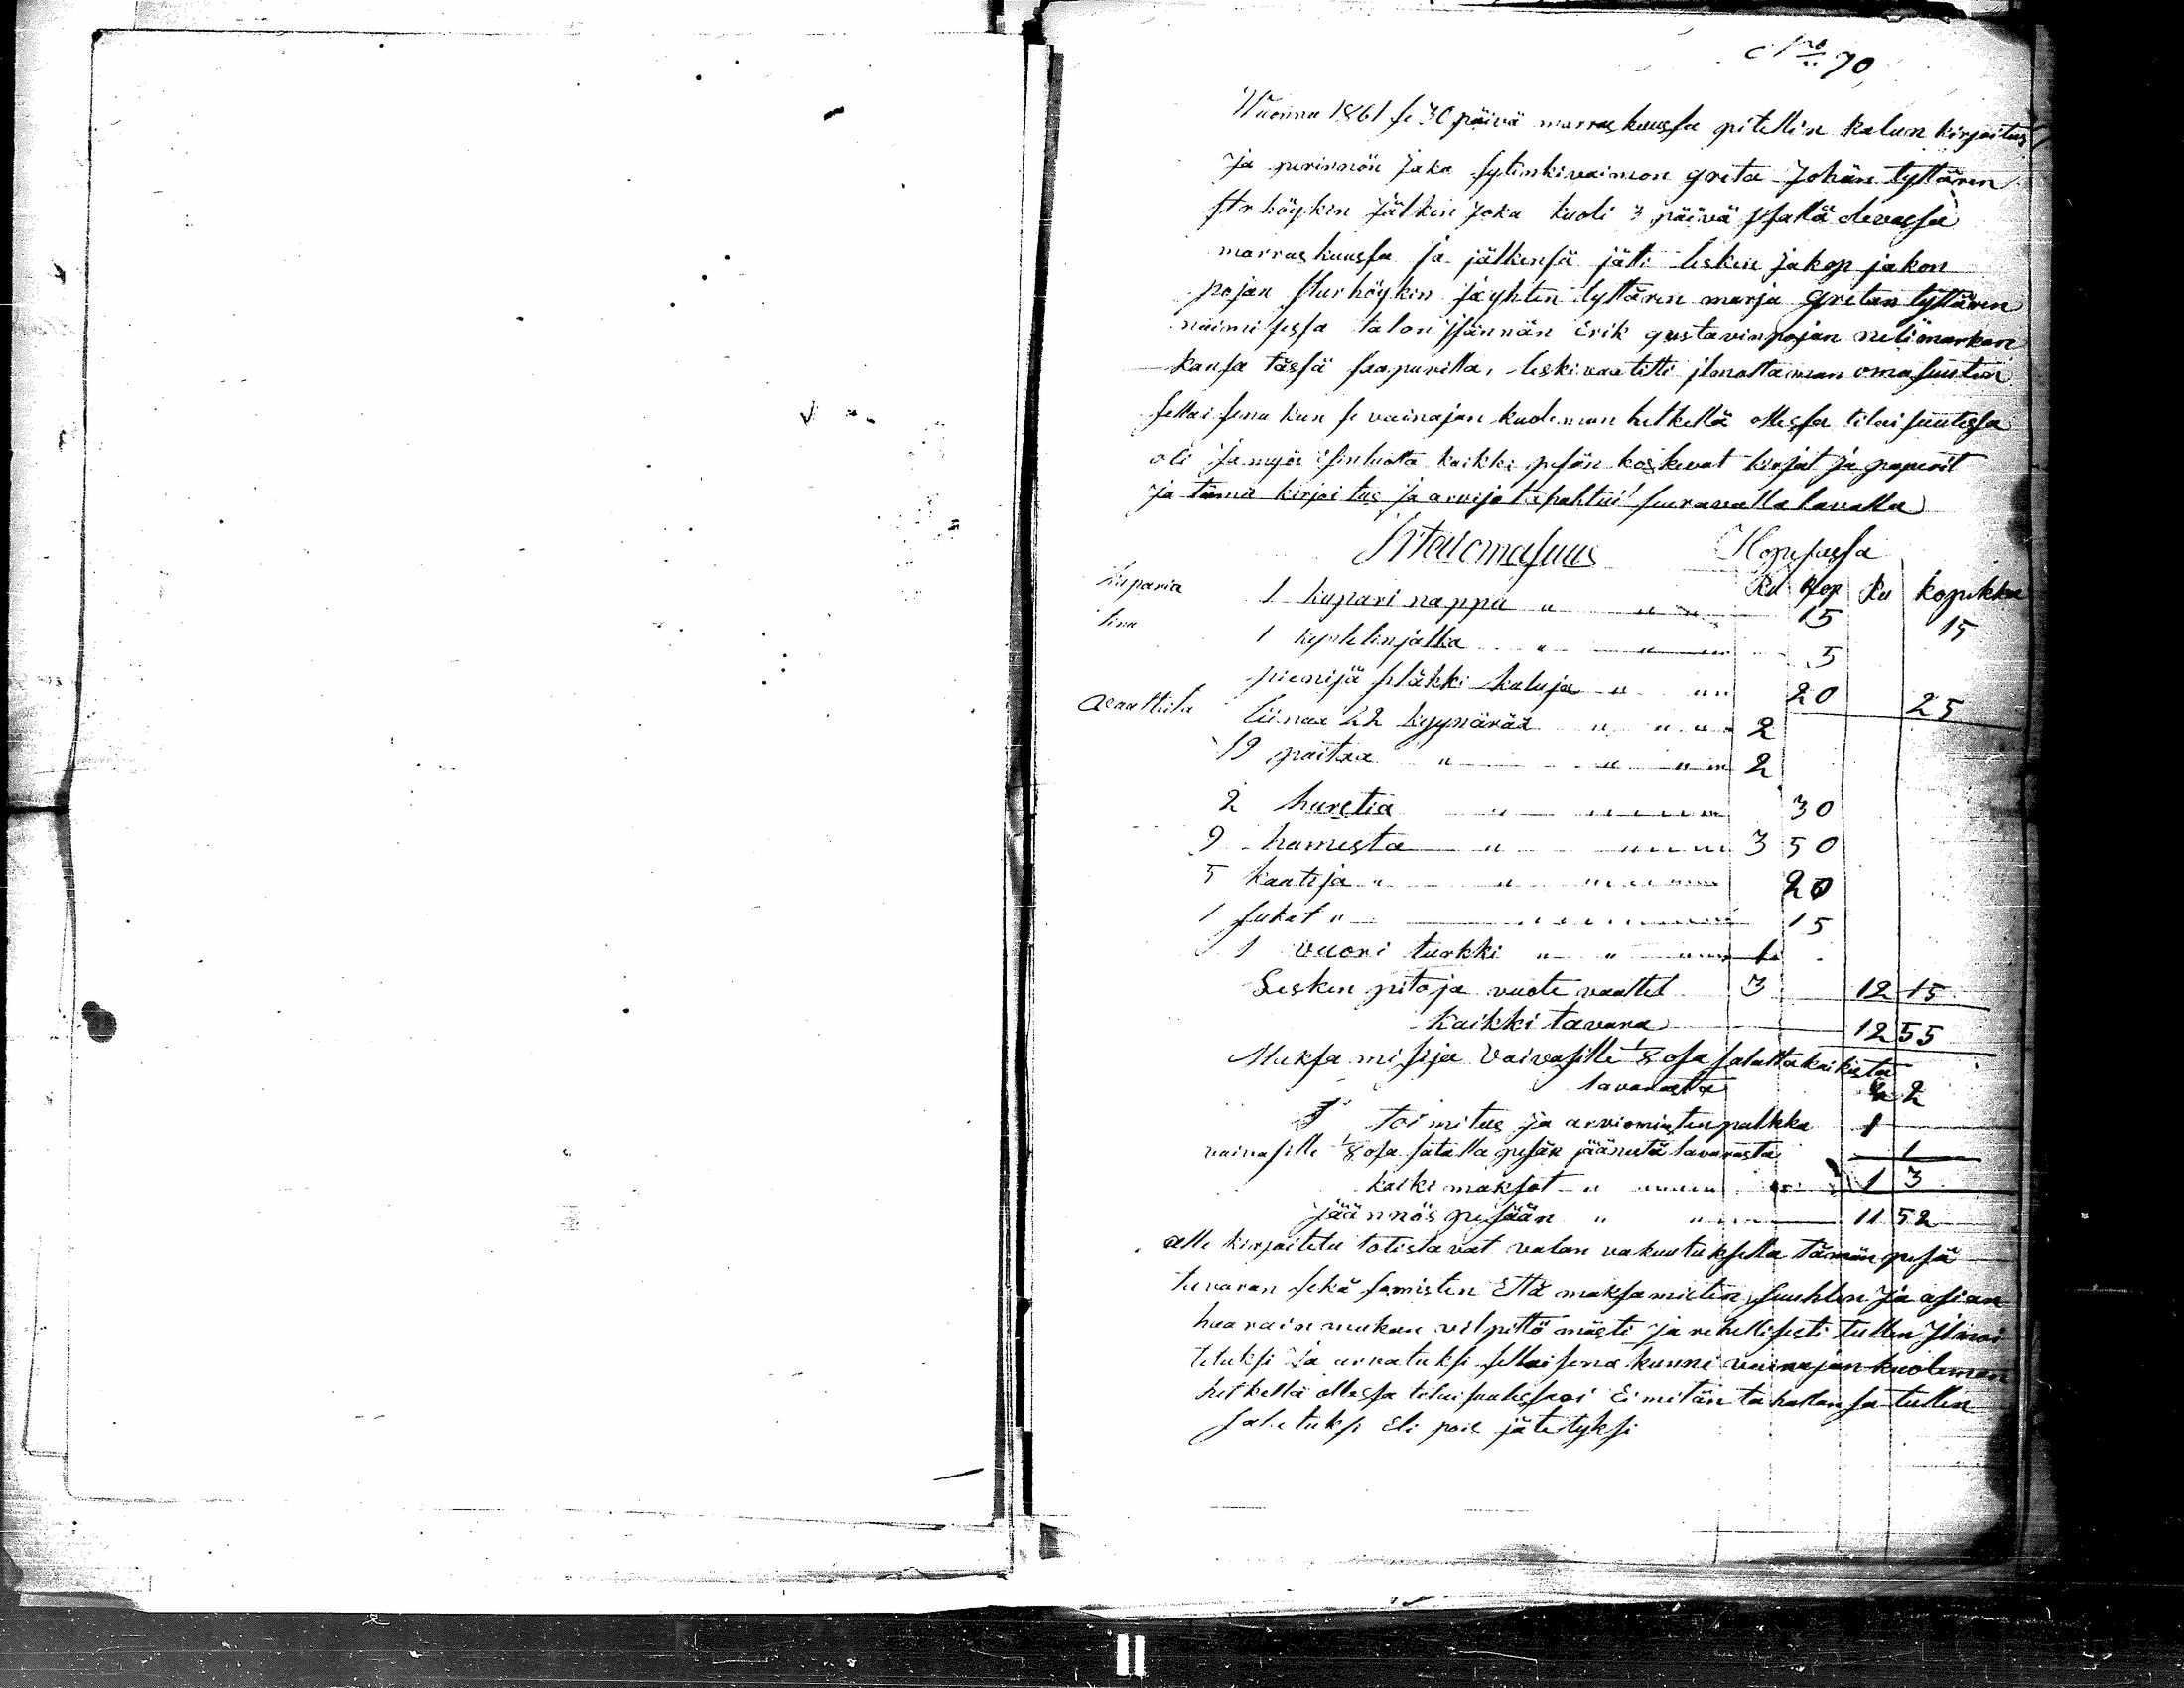 No 70
Wuonna 1861 se 30 päivä marraskuussa pitettin kalun kirjoitus
ja perinnön jako sytinkivaimon greta Johan tyttären
Sturhöykin jälkin joka kuoli 3 päivä sisällä olevassa
marraskuussa ja jälkensä jätti lesken jakop jakon
pojan Sturhöykin ja yhten tyttären marja gretan tyttären
naimisessa talon isännän Erik gustavinpojan nelimarkan
kansa tässä saapuvilla, leski vaatitti ilmottaman omasuuten
sellaisena kun se vainajan kuoleman hetkellä ollessa tilaisuutessa
oli ja myös kaikki pesän koskevat kirjat ja paperit
ja tämä kirjoitus ja arvijo tapahtui suravalla tavalla
Irtaiomasuus Hopejassa
Ru Kop Ru kopekka
kuparia 1 kupari nappu " " " 15 15
tina 1 kynttelinjalka " " 5
pienijä pläkki kaluja " " " 20 25
Waatteita liinaa 22 kyynärää " " " " 2
19 paitaa " " " " 2
2 huretia " " " " " 30
9 hamesta " " " " " 3 50
5 kauteja " " " " " " 20
1 sukat " " " " " " 15
1 vuori turkki " " " 1
Lesken pito ja vuote vaattet 3 12 15
kaikki tavara 12 55
Maksa misija Vaivasille 1/8 osa satalta kaikista
tavarasta 2
toimitus ja arviomiesten palkka 1
vaivasille 1/8 osa satalla pesän jäänestä tavarasta 1
kaiki maksot " " " " 1 3
jäännös pesään " " " 11 52
alle kirjoitetu totistavat valan vakuutuksella tämän pesä
tavaran sekä samisten Että maksamisten suuhten ja asian
haarain mukan vilpittömästi ja rehellisesti tullen Ilmoi
tetuksi ja arvatuksi sellaisena kunne vainajan kuoleman
hetkellä ollessa tilaisuutessa oi Ei mitän tahallansa tullen
salatuksi eli pois jätetyksi